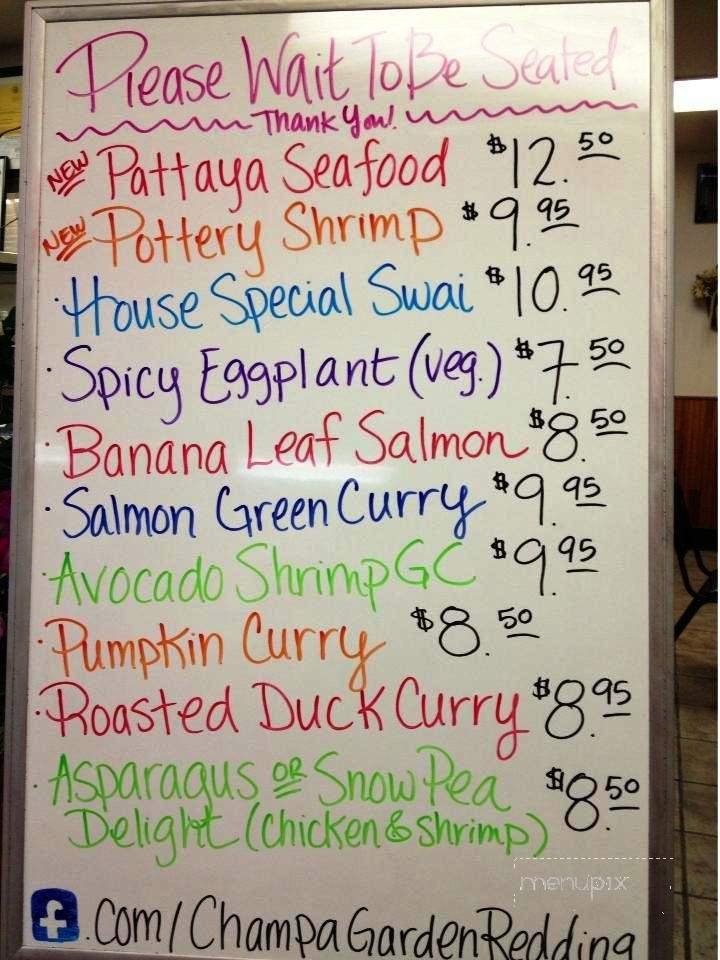 Please Wait To Be Seated
Thank You!
NEW Pattaya Seafood $12.50
NEW Pottery Shrimp $9.95
·House Special Swai $10.95
·Spicy Eggplant (veg.) $7.50
·Banana Leaf Salmon $8.50
·Salmon Green Curry $9.95
·Avocado Shrimp GC $9.95
·Pumpkin Curry $8.50
·Roasted Duck Curry $8.95
·Asparagus OR Snow Pea $8.50
Delight (chicken & shrimp)
f.com/ChampaGardenRedding
menupix